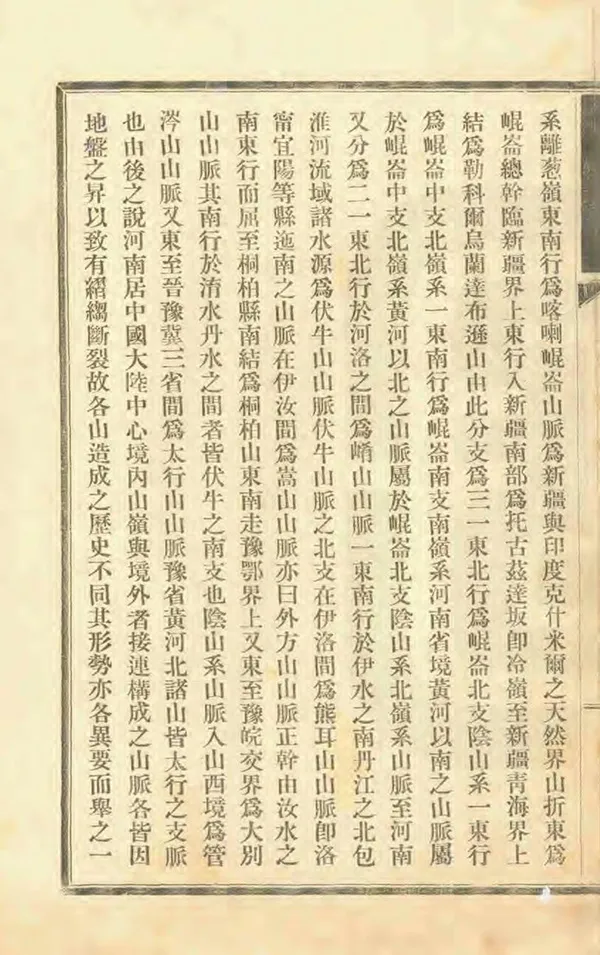 系離葱嶺東南行爲喀喇崐崙山脈爲新疆與印度克什米爾之天然界山折東爲
崐崙總幹臨新疆界上東行入新疆南部爲托古茲達坂卽冷嶺至新疆青海界上
結爲勒科爾烏蘭達布遜山由此分支爲三一東北行爲崐崙北支陰山系一東行
爲崐崙中支北嶺系一東南行爲崐崙南支南嶺系河南省境黃河以南之山脈屬
於崐崙中支北嶺系黃河以北之山脈屬於崐崙北支陰山系北嶺系山脈至河南
又分爲二一東北行於河洛之間爲崤山山脈一東南行於伊水之南丹江之北包
淮河流域諸水源爲伏牛山山脈伏牛山脈之北支在伊洛間爲熊耳山山脈卽洛
甯宜陽等縣迤南之山脈在伊汝間爲嵩山山脈亦曰外方山山脈正幹由汝水之
南東行而屆至桐柏縣南結爲桐柏山東南走豫鄂界上又東至豫皖交界爲大別
山山脈其南行於淯水丹水之間者皆伏牛之南支也陰山系山脈入山西境爲管
涔山山脈又東至晉豫冀三省間爲太行山山脈豫省黃河北諸山皆太行之支脈
也由後之說河南居中國大陸中心境內山嶺與境外者接連構成之山脈各皆因
地盤之昇以致有縐縐斷裂故各山造成之歷史不同其形勢亦各異要而舉之一